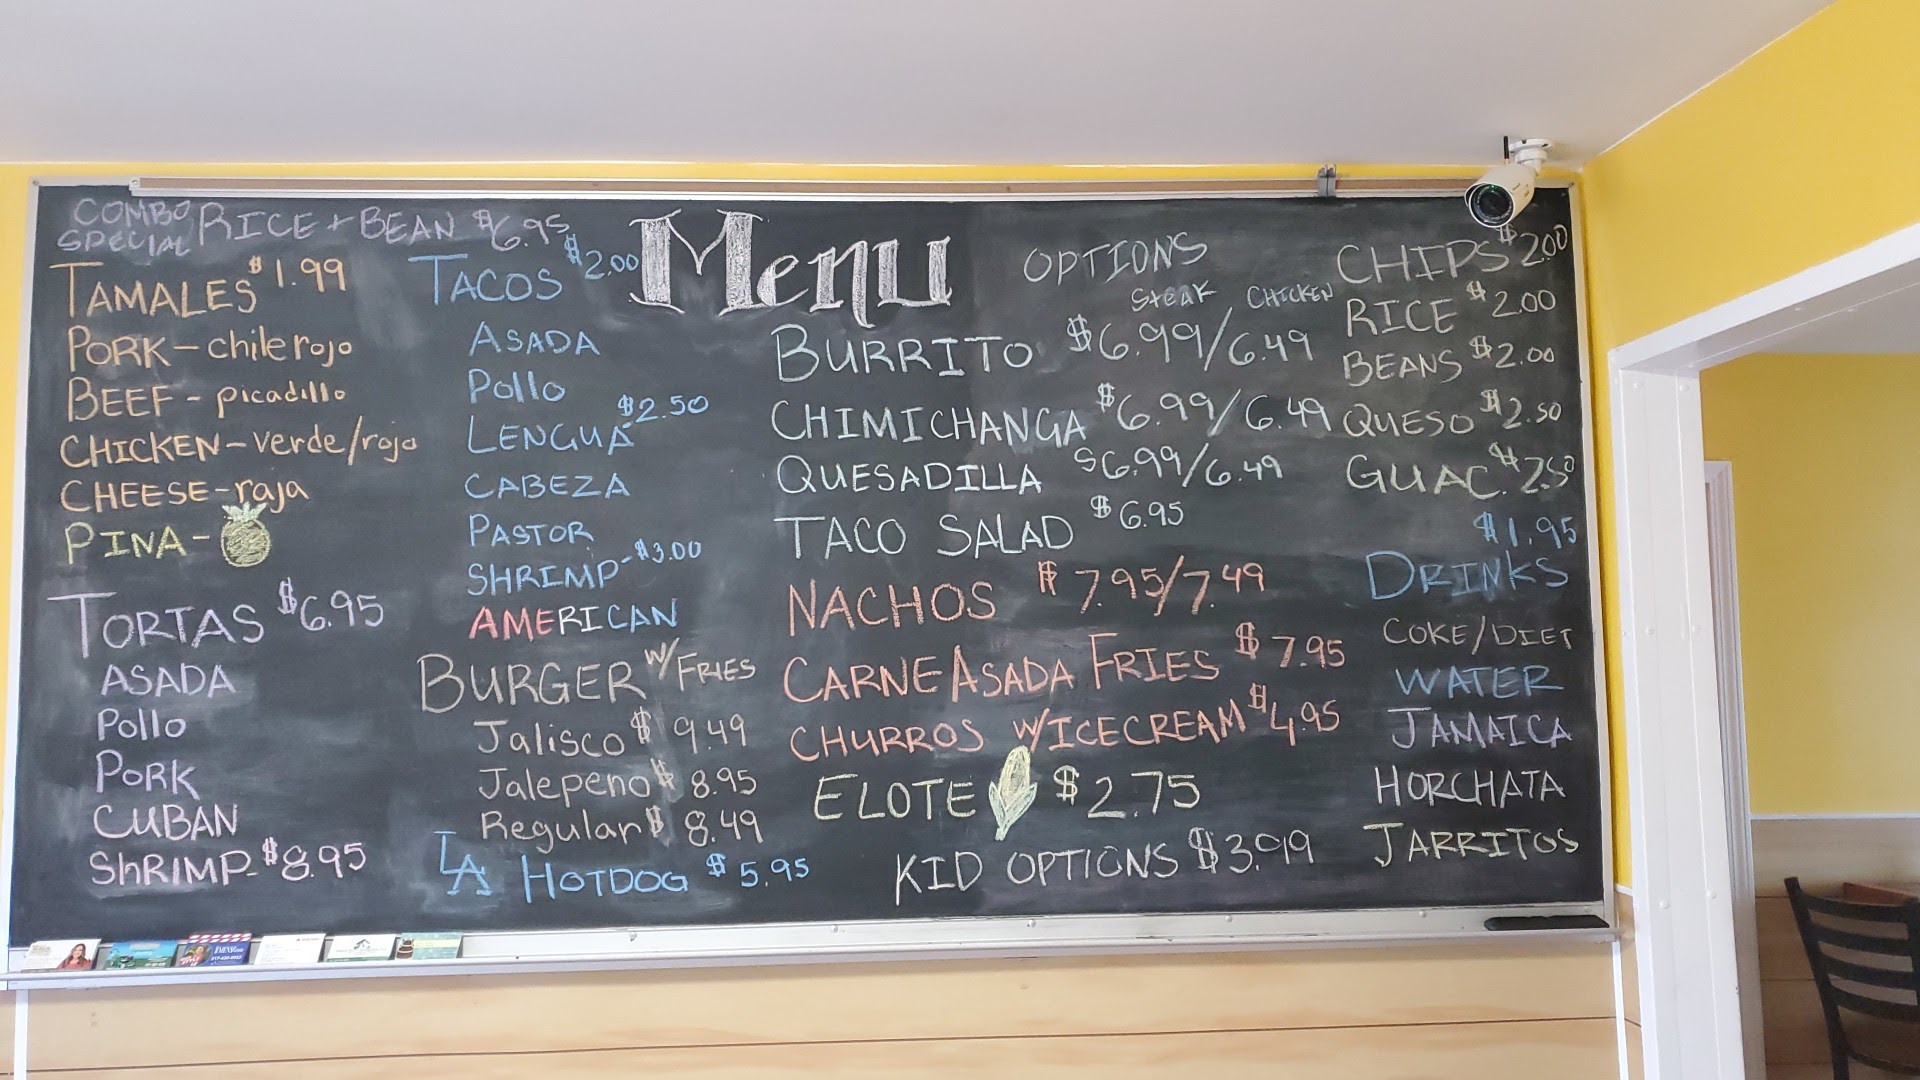 COMBO SPECIAL RICE + BEAN $6.95
TAMALES $1.99
PORK - chile rojo
BEEF - picadillo
CHICKEN - verde/rojo
CHEESE - raja
PINA -
TORTAS $6.95
ASADA
Pollo
PORK
CUBAN
ShRIMP - $8.95
TACOS $2.00
ASADA
Pollo
LENGUA - $2.50
CABEZA
PASTOR
SHRIMP - $3.00
AMERICAN
BURGER W/ FRIES
Jalisco $ 9.49
Jalepeno $ 8.95
Regular $ 8.49
LA HOTDOG $ 5.95
Menu
OPTIONS
STEAK CHICKEN
BURRITO $6.99/6.49
CHIMICHANGA $6.99/6.49
QUESADILLA $6.99/6.49
TACO SALAD $6.95
NACHOS $7.95/7.49
CARNE ASADA FRIES $7.95
CHURROS W/ICECREAM $4.95
ELOTE $2.75
KID OPTIONS $3.99
CHIPS $2.00
RICE $2.00
BEANS $2.00
QUESO $2.50
GUAC. $2.50
$1.95
DRINKS
COKE/DIET
WATER
JAMAICA
HORCHATA
JARRITOS